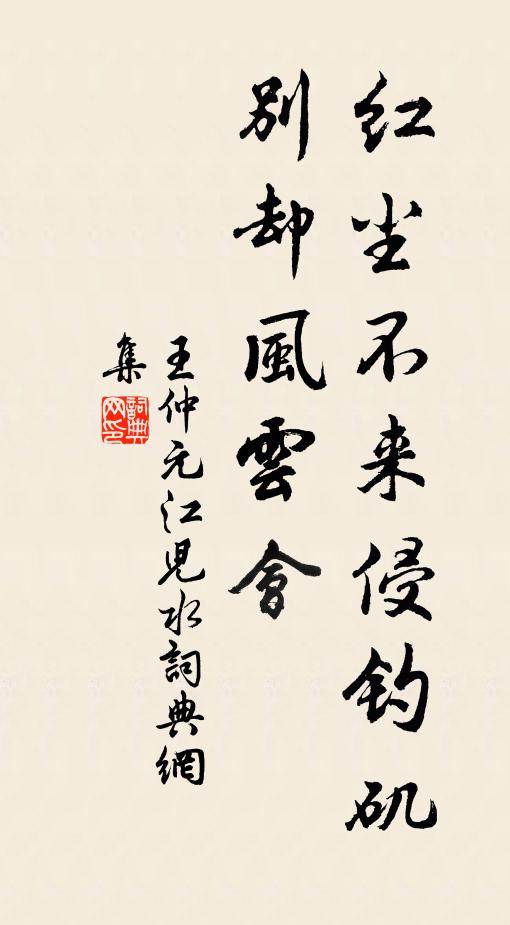 红尘不来侵钓矶
別却風雲會
王仲元江児水詞典網
集
詞典
网印